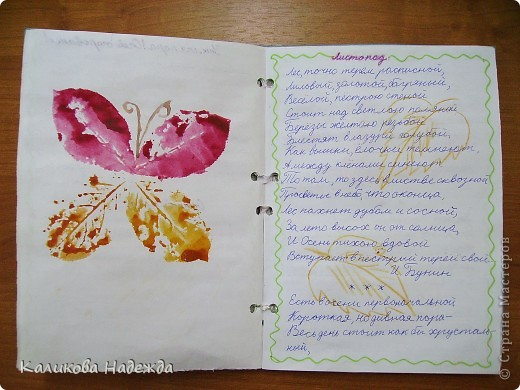 Листопад
Лес, точно терем расписной,
Лиловый, золотой, багряный,
Веселой, пестрою стеной
Стоит над светлою поляной
Березы желтою резьбой
Блестят в лазури голубой,
Как вышки, елочки темнеют,
А между кленами синеют
То там, то здесь в листве сквозной
Просветы в небо, что оконца,
Лес пахнет дубом и сосной,
За лето высох он от солнца,
И Осень тихою вдовой
Вступает в пестрый терем свой
И. Бунин
* * *
Есть в осени первоначальной
Короткая, но дивная пора-
Весь день стоит как бы хрусталь-
ный,
Каликова Надежда
© Страна Мастеров